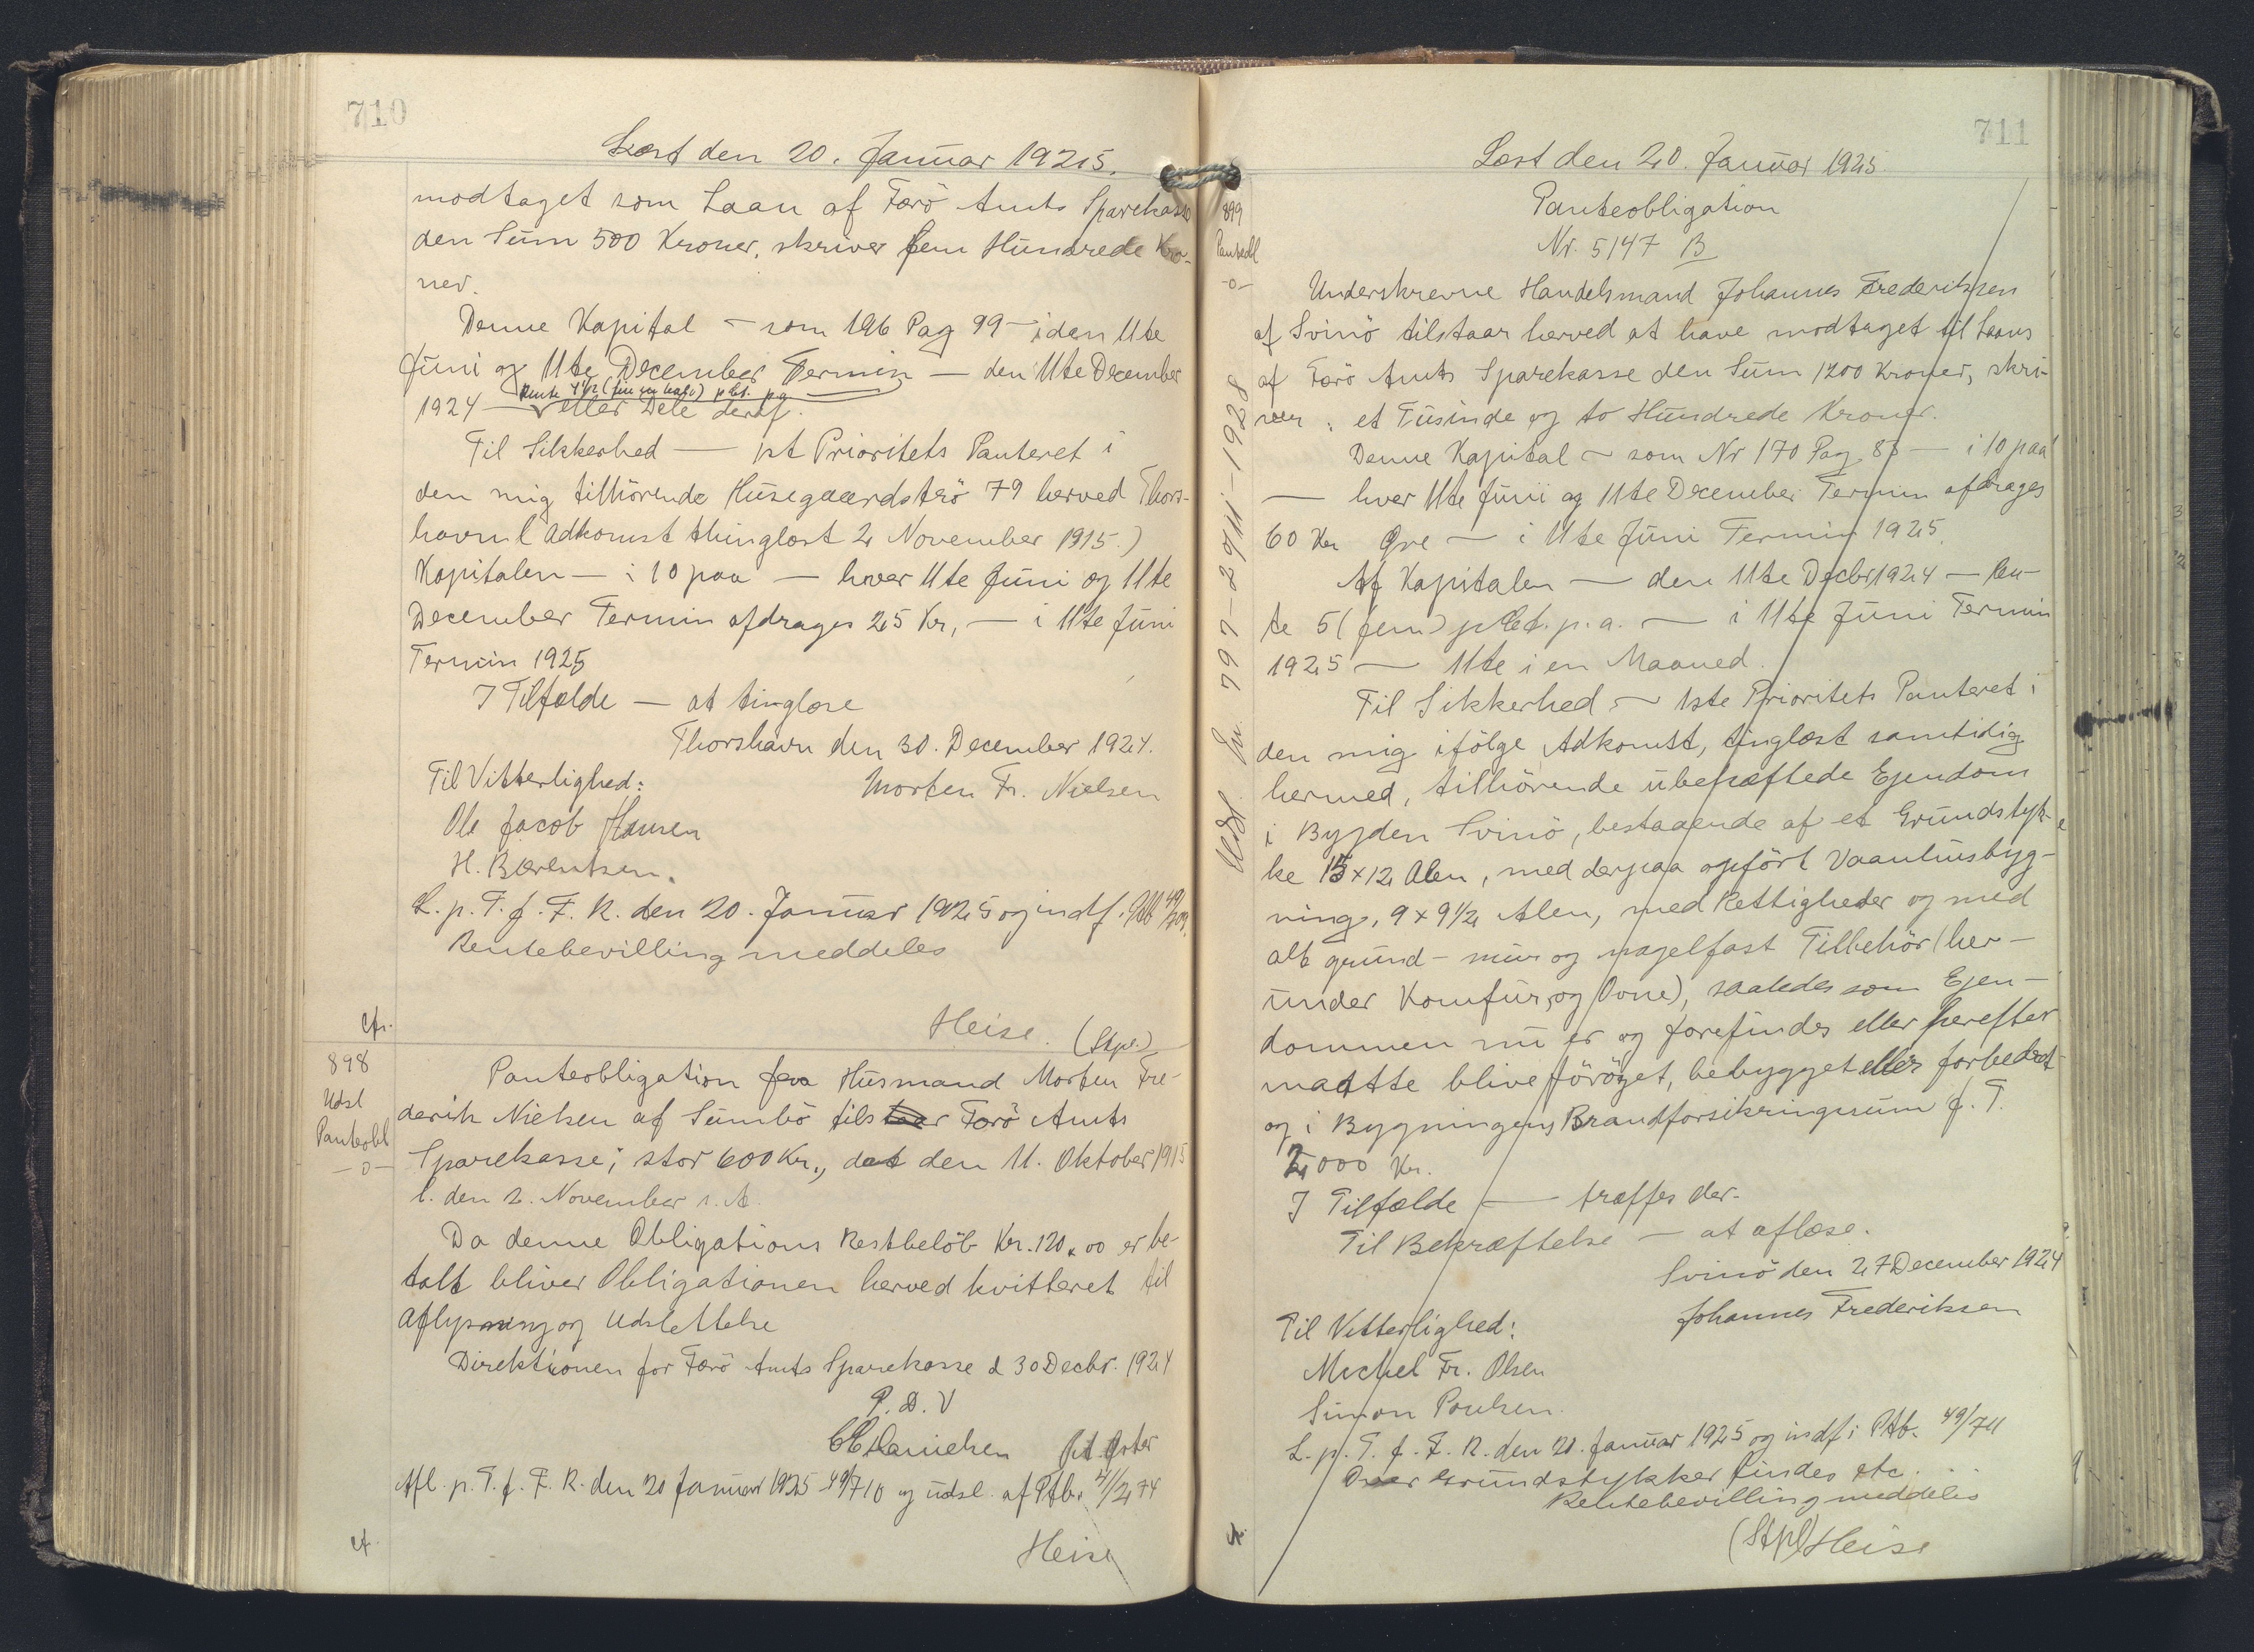 710
Læst den 20. Januar 1925.
modtaget som Laan af Færö Amts Sparekasse
den Sum 500 Kroner, skriver fem Hundrede Kro-
ner.
Denne Kapital — som 196 Pag 99 — i den 11te
Juni og 11te December Termin — den 11te December
Rente pct. p.a
1924 — eller Dele deraf.
Til Sikkerhed — 1st Prioritets Panteret i
den mig tilhörende Husegaardströ 79 herved Thors-
havn (Adkomst thinglæst 2 November 1915.)
Kapitalen — i 10 paa — hver 11te Juni og 11te
December Termin afdrages 25 Kr, — i 11te Juni
Termin 1925
I Tilfælde — at tinglæse
Thorshavn den 30. December 1924.
Til Vitterlighed:
Morten Fr. Nielsen
Ole Jacob Hansen
H. Bærentsen.
L. p. T. f. F. R. den 20. Januar 1925 og indf. 49/709.
Rentebevilling meddeles
cfr.
Heise. (Stpl.)
898
Udsl
Panteobl
—o—
Panteobligation fra Husmand Morten Fre-
derik Nielsen af Sumbö til Færö Amts
Sparekasse; stor 600 Kr., dat den 11. Oktober 1915
l. den 2. November s. A.
Da denne Obligations Restbelöb Kr. 120,00 er be-
talt bliver Obligationen herved kvitteret til
Aflysning og Udslettelse
Direktionen for Færö Amts Sparekasse d 30 Decbr. 1924
P. D. V
Danielsen
Afl. p. T. f. F. R. den 20 Januar 1925 49/710 og udsl. af Ptb.
cf.
Heise
711
Læst den 20. Januar 1925.
899
Panteobl
—o—
Panteobligation
Nr. 5147 B
Underskrevne Handelsmand Johannes Frederiksen
af Svinö tilstaar herved at have modtaget til Laans
af Færö Amts Sparekasse den Sum 1200 Kroner, skri-
ver: et Tusinde og to Hundrede Kroner.
Denne Kapital — som Nr 170 Pag 85 — i 10 paa
— hver 11te Juni og 11te December Termin afdrages
60 Kr Öre — i 11te Juni Termin 1925.
Af Kapitalen — den 11te Decbr 1924 — Ren-
te 5 (fem) pCt. p. a. — i 11te Juni Termin
1925 — 11te i en Maaned.
Til Sikkerhed — 1ste Prioritets Panteret i
den mig ifölge Adkomst, tinglæst samtidig
hermed, tilhörende ubehæftede Ejendom
i Bygden Svinö, bestaaende af et Grundstyk-
ke 15 x 12 Alen, med derpaa opfört Vaanhusbyg-
ning, 9 x 9 1/2 Alen, med Rettigheder og med
alt grund- mur og nagelfast Tilbehör (her-
under Komfur og Ovne), saaledes som Ejen-
dommen nu er og forefindes eller herefter
maatte blive foröget, bebygget eller forbedret
og i Bygningens Brandforsikringssum f. T.
2000 Kr.
I Tilfælde — træffes der.
Til Bekræftelse — at aflæse.
Svinö den 27 December 1924
Johannes Frederiksen
Til Vitterlighed:
Michel Fr. Olsen
Simon Poulsen.
L. p. T. f. F. R. den 20. Januar 1925 og indf. i Ptb. 49/711
Over Grundstykker findes etc.
Rentebevilling meddeles
cfr.
(Stpl) Heise
Udsl. En 797 - 27/11 - 1928